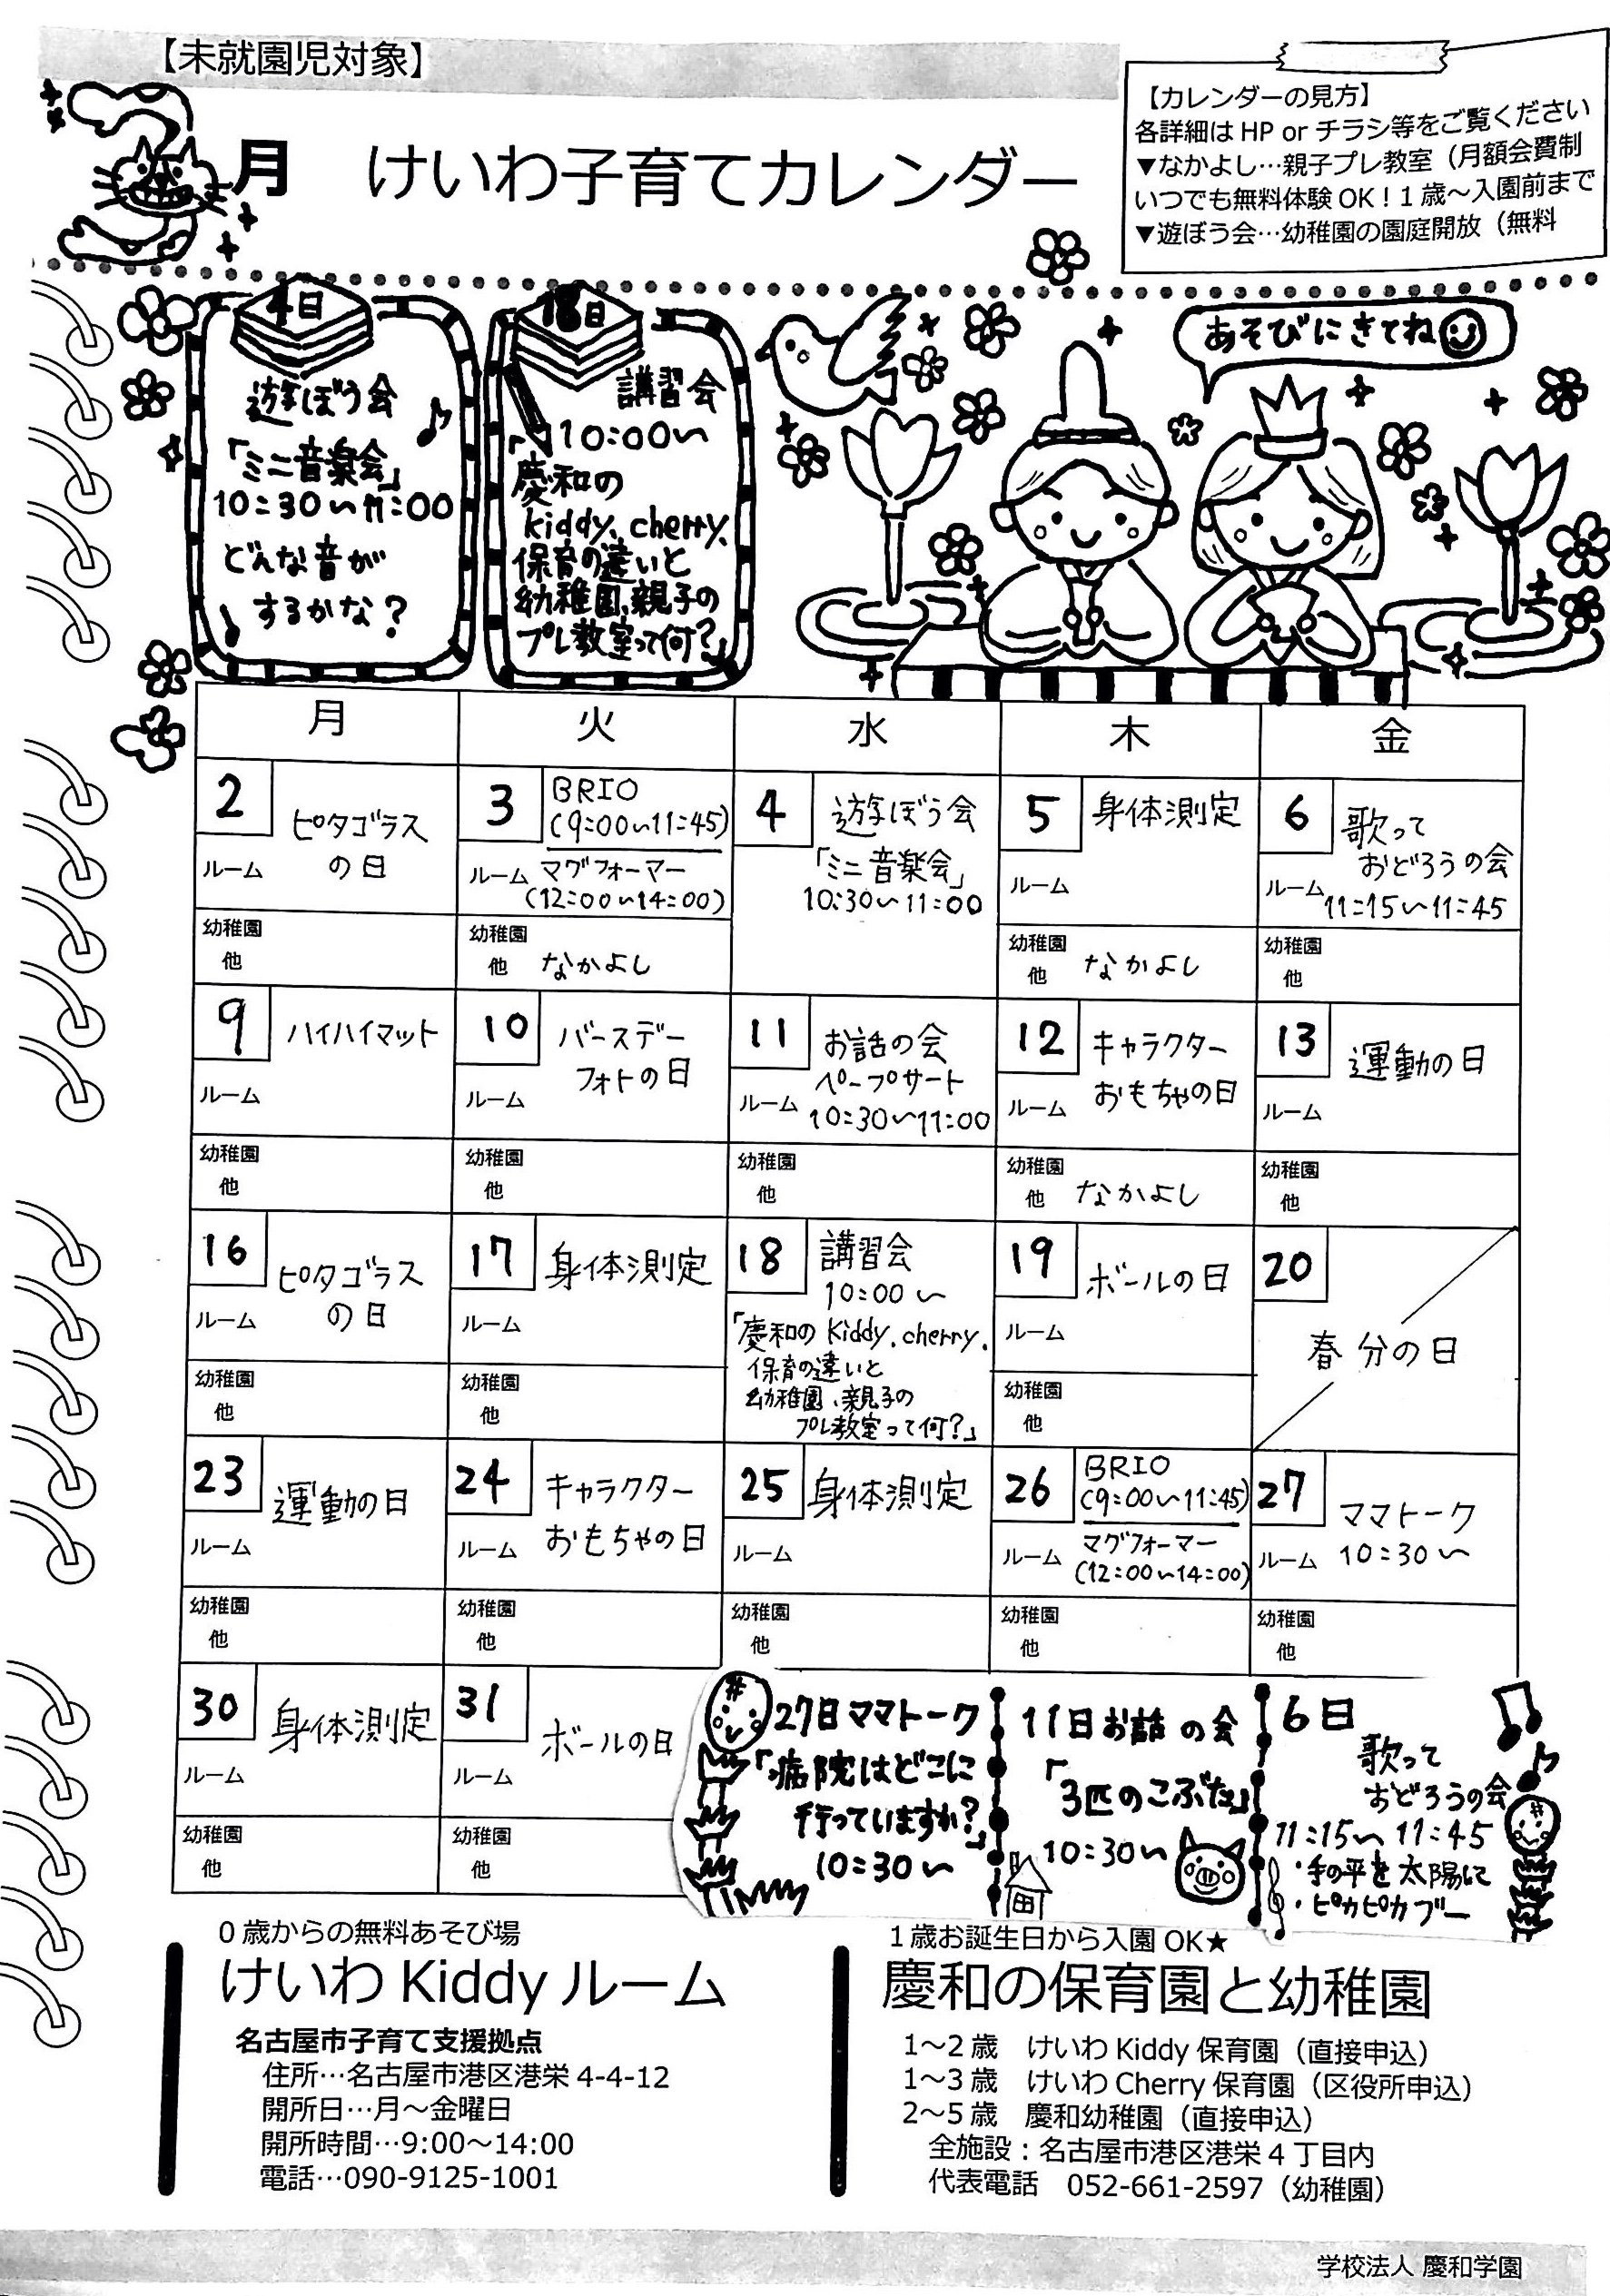 【未就園児対象】
月 けいわ子育てカレンダー
【カレンダーの見方】
各詳細は HP or チラシ等をご覧ください
▼なかよし…親子プレ教室（月額会費制
いつでも無料体験 OK！1 歳～入園前まで
▼遊ぼう会…幼稚園の園庭開放（無料
4日
遊ぼう会
「ミニ音楽会」
10:30～11:00
どんな音が
するかな？
18日
講習会
10:00～
「慶和の
kiddy、cherry、
保育の違いと
幼稚園、親子の
プレ教室って何？」
あそびにきてね
月 火 水 木 金
2
ピタゴラス
の日
ルーム
幼稚園
他
3
BRIO
(9:00～11:45)
ルーム マグフォーマー
(12:00～14:00)
幼稚園
他 なかよし
4
遊ぼう会
「ミニ音楽会」
10:30～11:00
5
身体測定
ルーム
幼稚園
他 なかよし
6
歌って
おどろうの会
ルーム 11:15～11:45
幼稚園
他
9
ハイハイマット
ルーム
幼稚園
他
10
バースデー
フォトの日
ルーム
幼稚園
他
11
お話の会
ペープサート
ルーム 10:30～11:00
幼稚園
他
12
キャラクター
おもちゃの日
ルーム
幼稚園
他 なかよし
13
運動の日
ルーム
幼稚園
他
16
ピタゴラス
の日
ルーム
幼稚園
他
17
身体測定
ルーム
幼稚園
他
18
講習会
10:00～
「慶和の Kiddy.cherry.
保育の違いと
幼稚園、親子の
プレ教室って何？」
19
ボールの日
ルーム
幼稚園
他
20
春分の日
23
運動の日
ルーム
幼稚園
他
24
キャラクター
おもちゃの日
ルーム
幼稚園
他
25
身体測定
ルーム
幼稚園
他
26
BRIO
(9:00～11:45)
ルーム マグフォーマー
(12:00～14:00)
幼稚園
他
27
ママトーク
ルーム 10:30～
幼稚園
他
30
身体測定
ルーム
幼稚園
他
31
ボールの日
ルーム
幼稚園
他
27日ママトーク
「病院はどこに
行っていますか？」
10:30～
11日お話の会
「3匹のこぶた」
10:30～
6日
歌って
おどろうの会
11:15～11:45
・手の平を太陽に
・ピカピカブー
0 歳からの無料あそび場
けいわ Kiddy ルーム
名古屋市子育て支援拠点
住所…名古屋市港区港栄 4-4-12
開所日…月～金曜日
開所時間…9:00～14:00
電話…090-9125-1001
1 歳お誕生日から入園 OK★
慶和の保育園と幼稚園
1～2 歳 けいわ Kiddy 保育園（直接申込）
1～3 歳 けいわ Cherry 保育園（区役所申込）
2～5 歳 慶和幼稚園（直接申込）
全施設：名古屋市港区港栄 4 丁目内
代表電話 052-661-2597（幼稚園）
学校法人 慶和学園